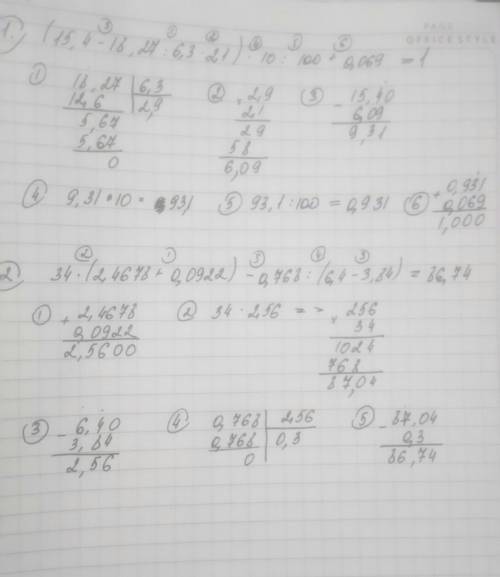 PAGE
OFFICE STYLE
③ ① ② ④ ⑤ ⑥
1. (15,4 - 18,27 : 6,3 · 2,1) · 10 : 100 + 0,069 = 1
① 18,27 | 6,3 ② × 2,9 ③ - 15,40
12,6 | 2,9 2,1 6,09
5,67 29 9,31
5,67 58
0 6,09
④ 9,31 · 10 = 93,1 ⑤ 93,1 : 100 = 0,931 ⑥ + 0,931
0,069
1,000
② ① ⑤ ④ ③
2. 34 · (2,4678 + 0,0922) - 0,768 : (6,4 - 3,84) = 86,74
① + 2,4678 ② 34 · 2,56 = > × 256
0,0922 34
2,5600 1024
768
87,04
③ - 6,40 ④ 0,768 | 2,56 ⑤ - 87,04
3,84 0,768 | 0,3 0,3
2,56 0 86,74